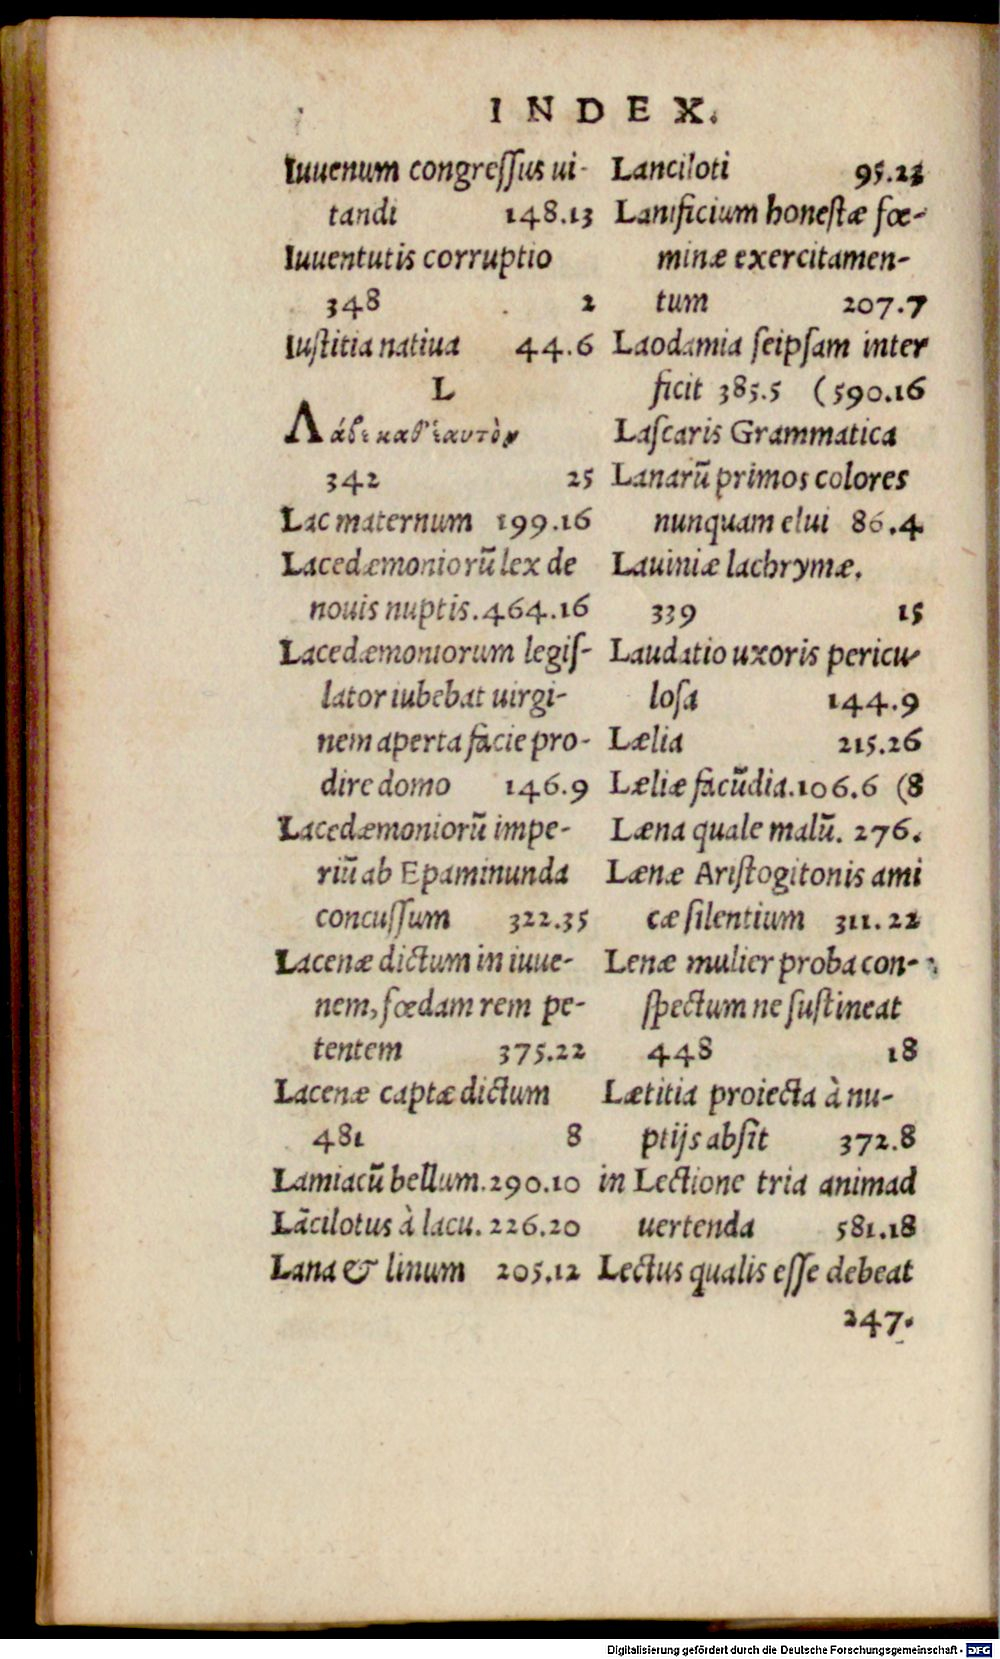 INDEX.
Iuuenum congreſſus ui-
tandi 148.13
Iuuentutis corruptio
348 2
Iuſtitia natiua 44.6
L
Λάθε καθ' ἑαυτὸν
342 25
Lac maternum 199.16
Lacedæmoniorũ lex de
nouis nuptis. 464.16
Lacedæmoniorum legiſ-
lator iubebat uirgi-
nem aperta facie pro-
dire domo 146.9
Lacedæmoniorũ impe-
riũ ab Epaminunda
concuſſum 322.35
Lacenæ dictum in iuue-
nem, fœdam rem pe-
tentem 375.22
Lacenæ captæ dictum
481 8
Lamiacũ bellum. 290.10
Lãcilotus à lacu. 226.20
Lana & linum 205.12
Lanciloti 95.23
Lanificium honeſtæ fœ-
minæ exercitamen-
tum 207.7
Laodamia ſeipſam inter
ficit 385.5 (590.16
Laſcaris Grammatica
Lanarũ primos colores
nunquam elui 86.4
Lauiniæ lachrymæ.
339 15
Laudatio uxoris pericu-
loſa 144.9
Lælia 215.26
Læliæ facũdia. 106.6 (8
Læna quale malũ. 276.
Lænæ Ariſtogitonis ami
cæ ſilentium 311.22
Lenæ mulier proba con-
ſpectum ne ſuſtineat
448 18
Lætitia proiecta à nu-
ptijs abſit 372.8
in Lectione tria animad
uertenda 581.18
Lectus qualis eſſe debeat
247.
Digitalisierung gefördert durch die Deutsche Forschungsgemeinschaft - DFG